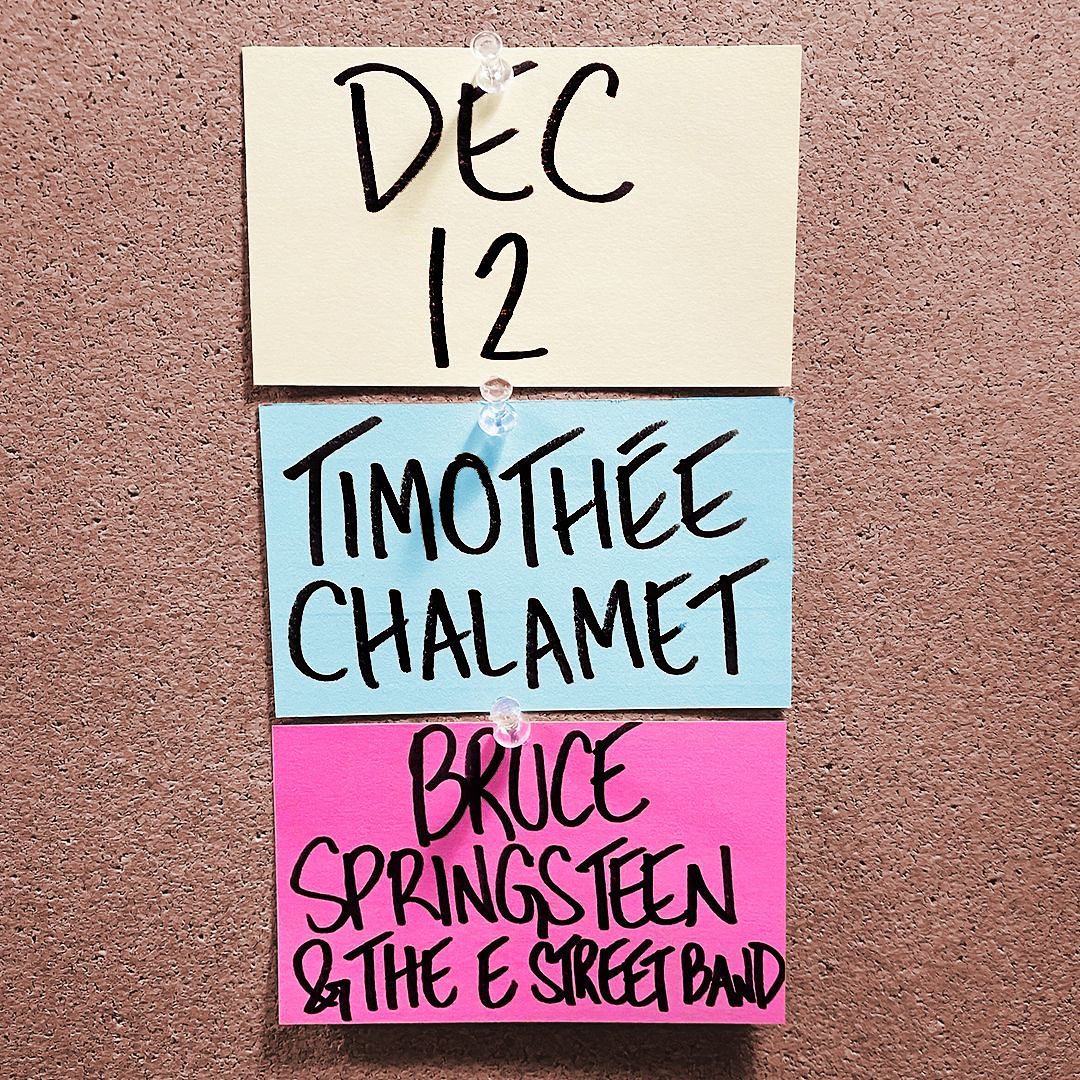 DEC
12
TIMOTHÉE
CHALAMET
BRUCE
SPRINGSTEEN
& THE E STREET BAND